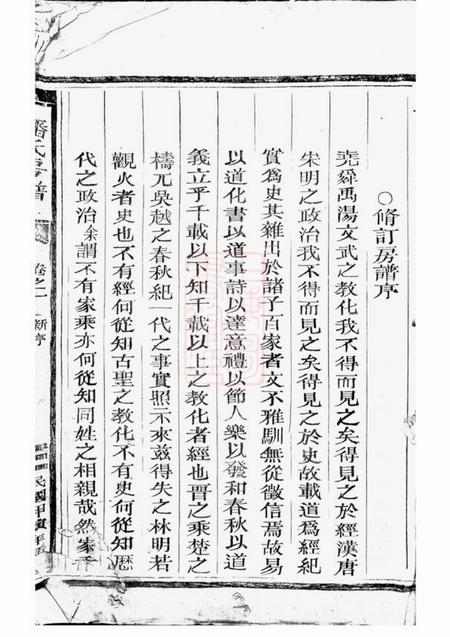 ○修訂房譜序
堯舜禹湯文武之教化我不得而見之矣得見之於經漢唐
宋明之政治我不得而見之矣得見之於史故載道為經紀
實為史其雜出於諸子百家者文不雅馴無從徵信焉故易
以道化書以道事詩以達意禮以節人樂以發和春秋以道
義立乎千載以下知千載以上之教化者經也晋之乘楚之
檮兀吳越之春秋紀一代之事實照示來兹得失之林明若
觀火者史也不有經何從知古聖之教化不有史何從知歷
代之政治余謂不有家乘亦何從知同姓之相親哉然家
潘氏房譜
卷之一
新序
民國甲寅年